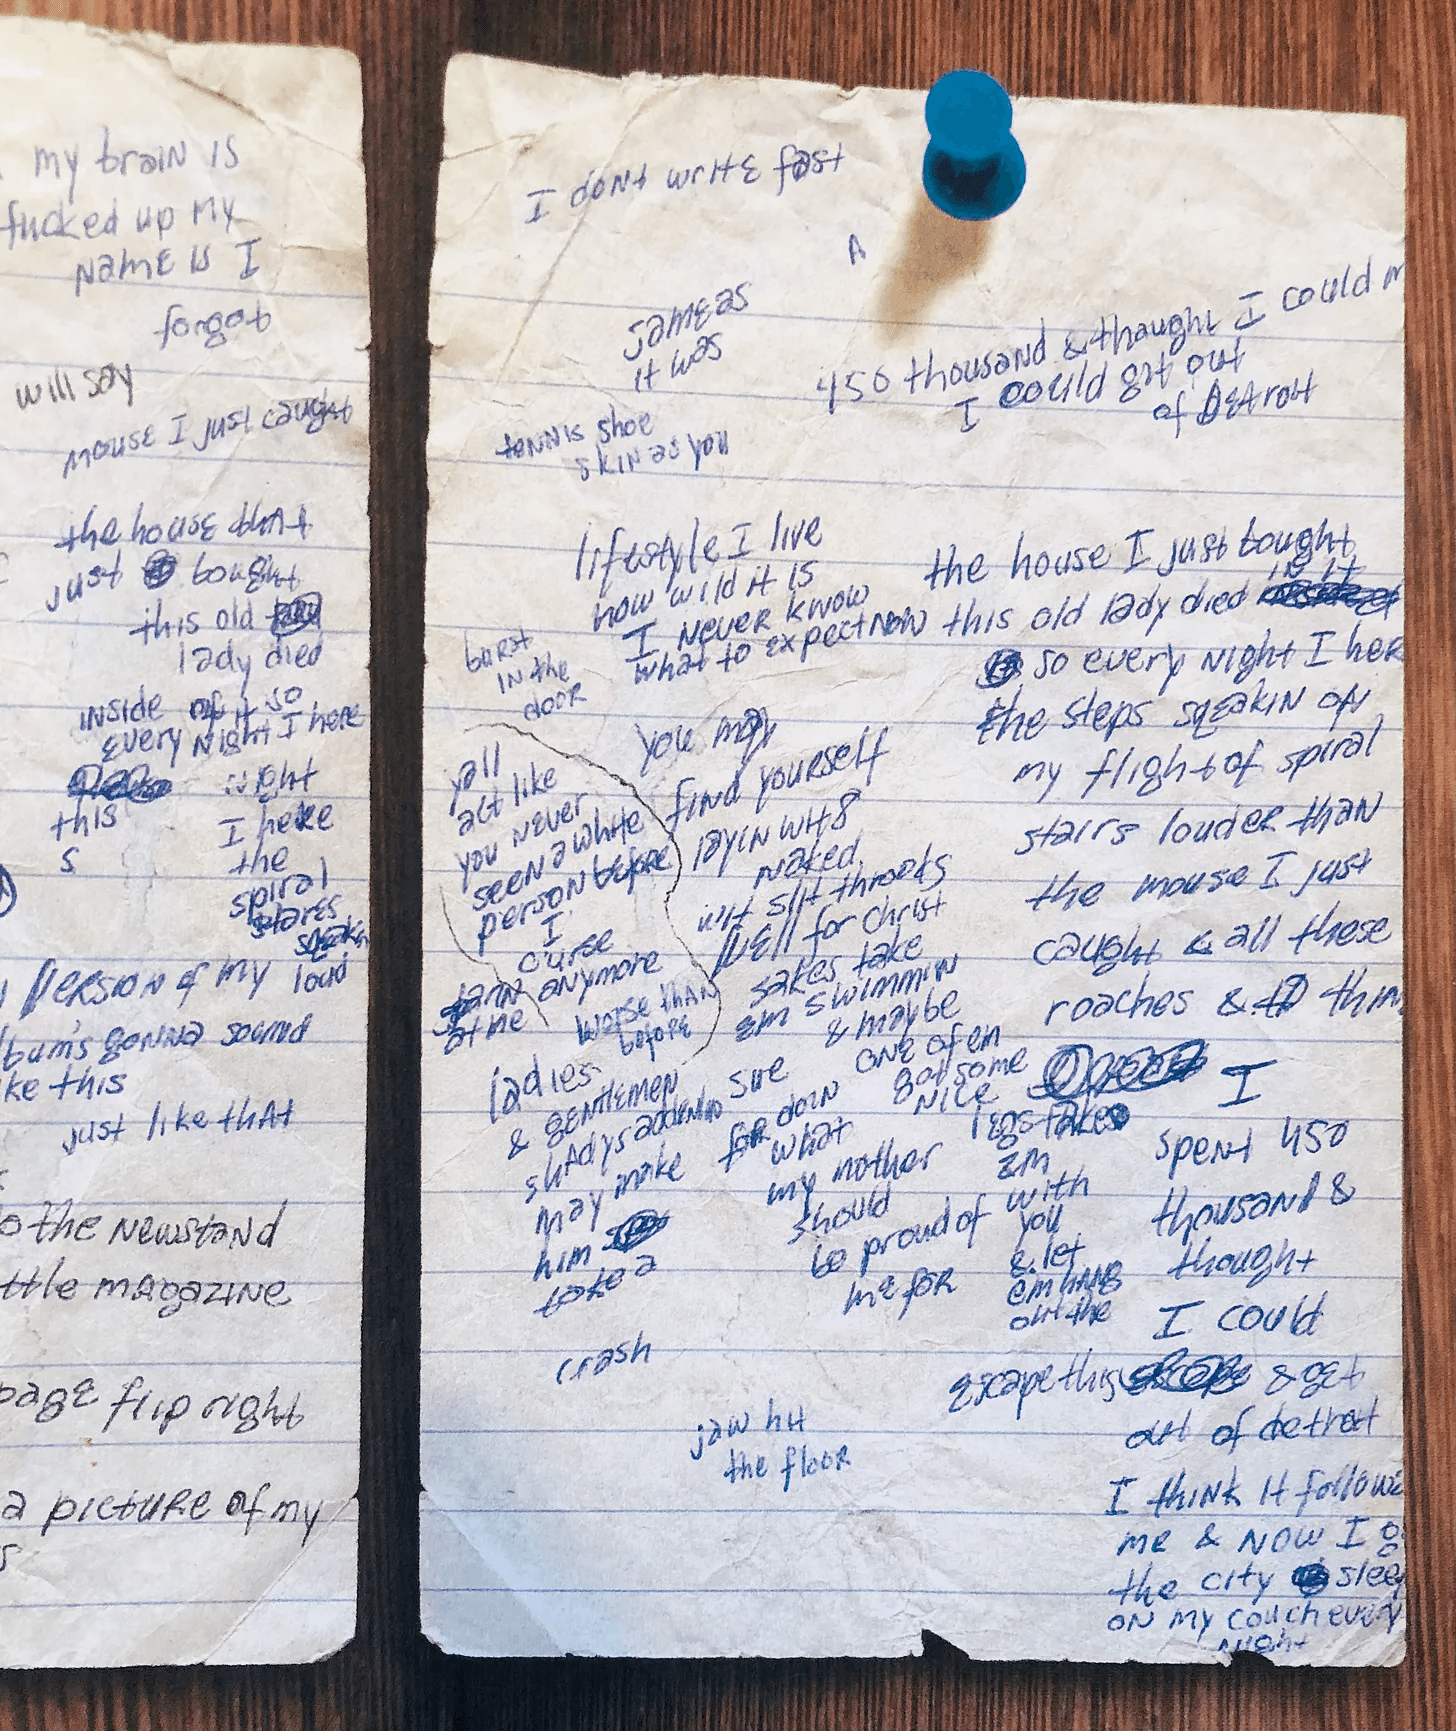 my brain is
fucked up my
name is I
forgot
will say
mouse I just caught
the house that
just bought
this old
lady died
inside of it so
every night I here
night
this I here
s the
spiral
stares
squeakn
version of my loud
bum's gonna sound
ke this
just like that
o the newstand
ttle magazine
page flip right
a picture of my
s
I dont write fast
A
same as
it was
450 thousand & thaught I could
I could get out
of Detroit
tennis shoe
skin as you
lifestyle I live
how wild it is
I never know
what to expect now
burst
in the
door
yall
act like
you never
seen a white
person before
I
curse
anymore
at me
worse than
before
ladies
& gentlemen
shadys addendeo
may make
him
take a
crash
you may
find yourself
layin wit 8
naked
wit slit throats
well for christ
sakes take
em swimmin
& maybe
one of em
got some
nice
legs take
em
with
you
& let
em hang
out the
sue
for doin
what
my mother
should
be proud of
me for
jaw hit
the floor
the house I just bought
this old lady died in it
so every night I here
the steps sqeakin of
my flight of spiral
stairs louder than
the mouse I just
caught & all these
roaches &
I
spent 450
thousand &
thought
I could
escape this & get
out of detroit
I think it followe
me & now I g
the city slee
on my couch every
night